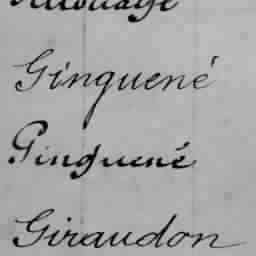 Ginguené
Pinguené
Giraudon